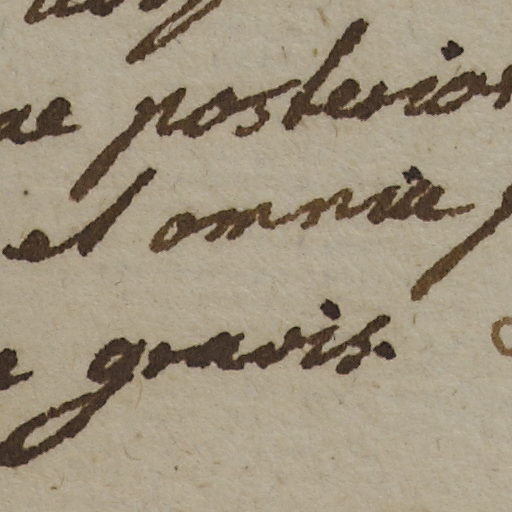 ae posterior
et omnia
gravis.